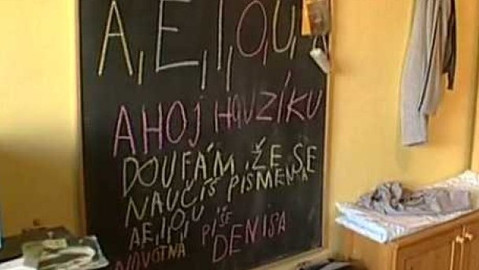 A, E, I, O, U,
AHOJ HOUZÍKU
DOUFÁM, ŽE SE
NAUČÍŠ PISMENKA
AE, I, O, U
PÍŠE
NOVOTNÁ DENISA